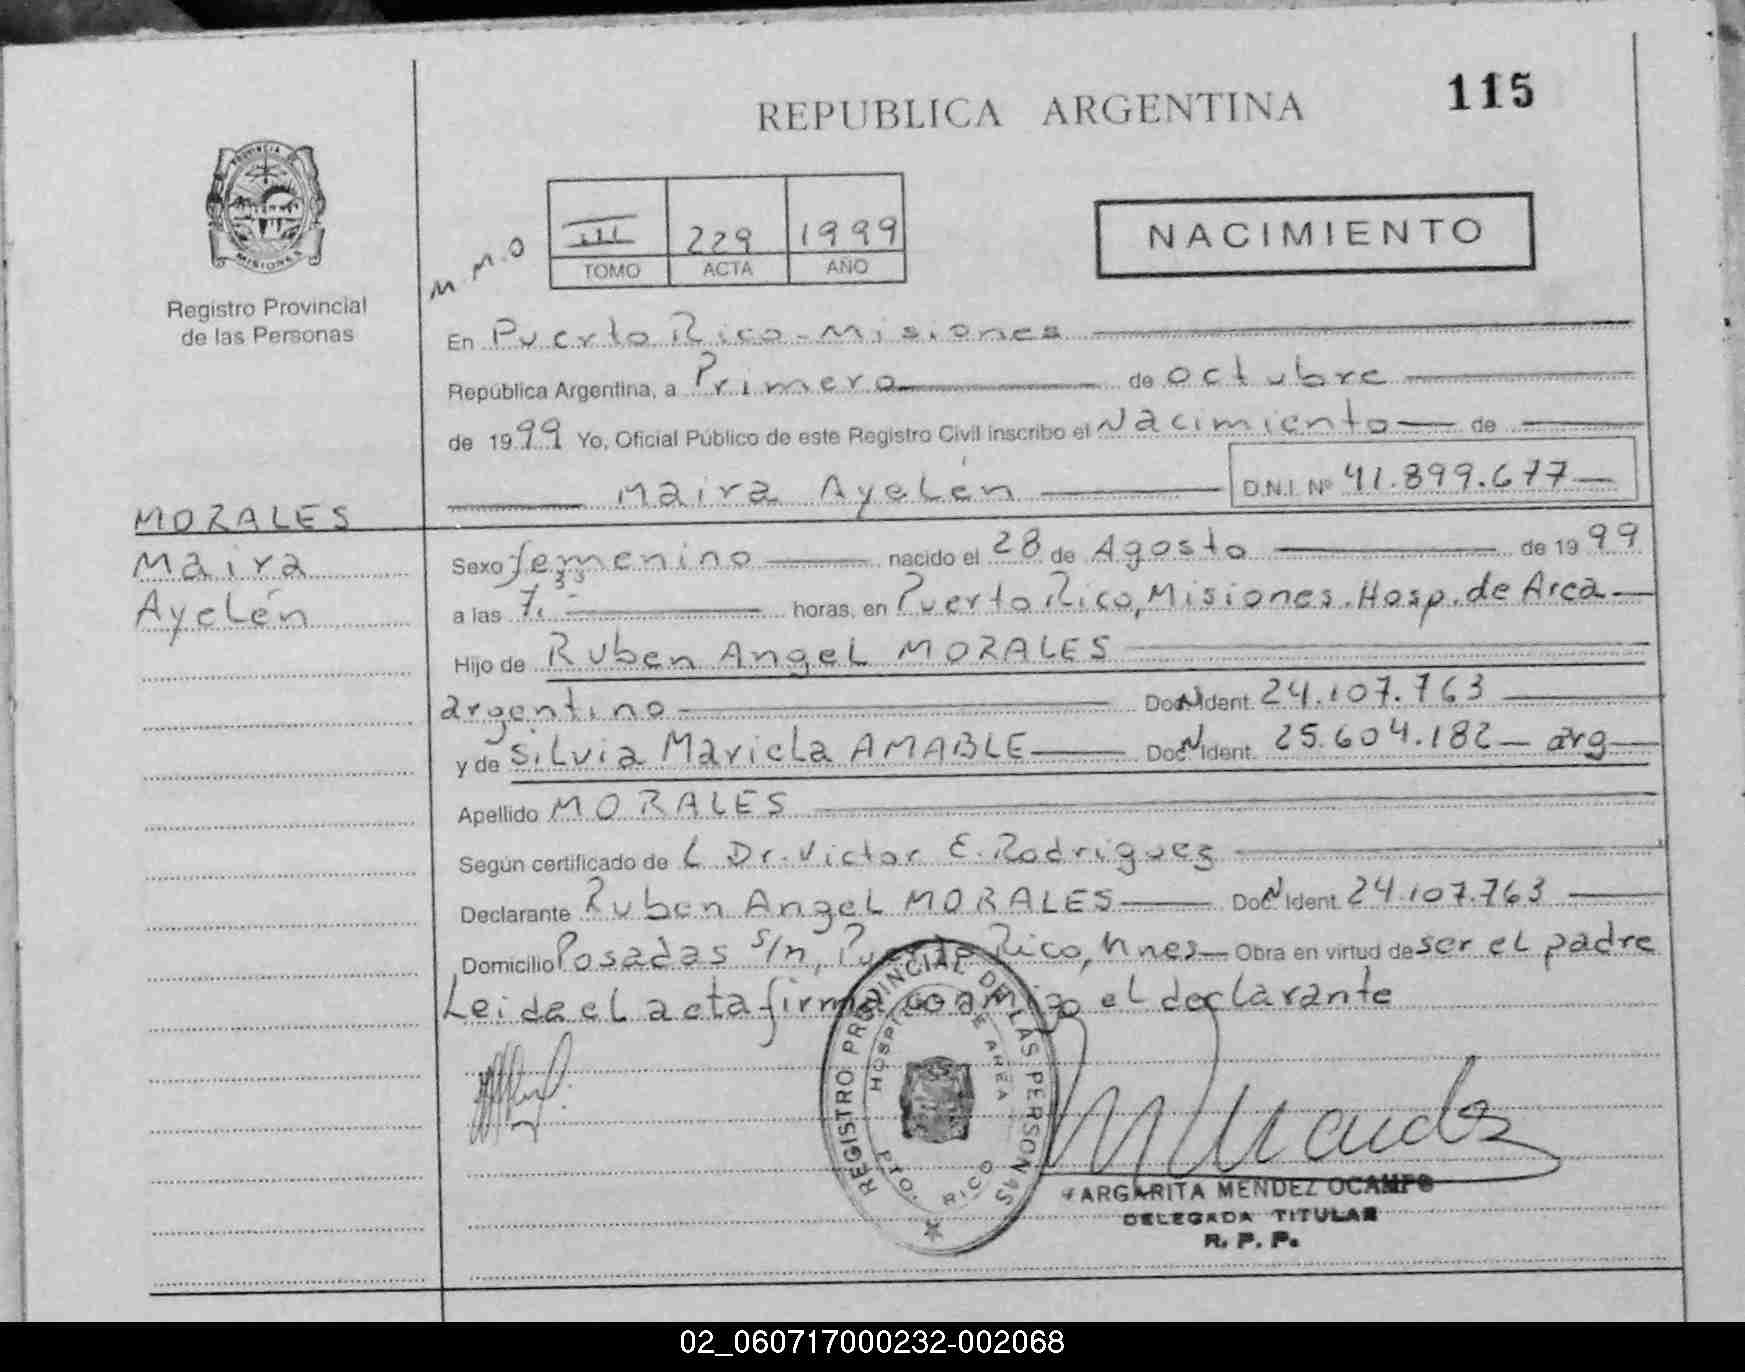 REPUBLICA ARGENTINA
115
PROVINCIA DE
MISIONES
Registro Provincial
de las Personas
M.M.O
III 229 1999
TOMO ACTA AÑO
NACIMIENTO
En Puerto Rico - Misiones
República Argentina, a Primero de octubre
de 1999 Yo, Oficial Público de este Registro Civil inscribo el Nacimiento de
Maira Ayelén D.N.I. Nº 41.899.677
MORALES
Maira
Ayelén
Sexo femenino nacido el 28 de Agosto de 1999
a las 7.35 horas, en Puerto Rico, Misiones. Hosp. de Area
Hijo de Ruben Angel MORALES
argentino Doc N Ident. 24.107.763
y de Silvia Mariela AMABLE Doc N Ident. 25.604.182 - arg
Apellido MORALES
Según certificado de L Dr. Victor E. Rodriguez
Declarante Ruben Angel MORALES Doc N Ident. 24.107.763
Domicilio Posadas s/n, Puerto Rico, Mnes Obra en virtud de ser el padre
Leida el acta firma conmigo el declarante
REGISTRO PROVINCIAL DE LAS PERSONAS
HOSPITAL DE AREA
PTO. RICO
MARGARITA MENDEZ OCAMPO
DELEGADA TITULAR
R. P. P.
02_060717000232-002068